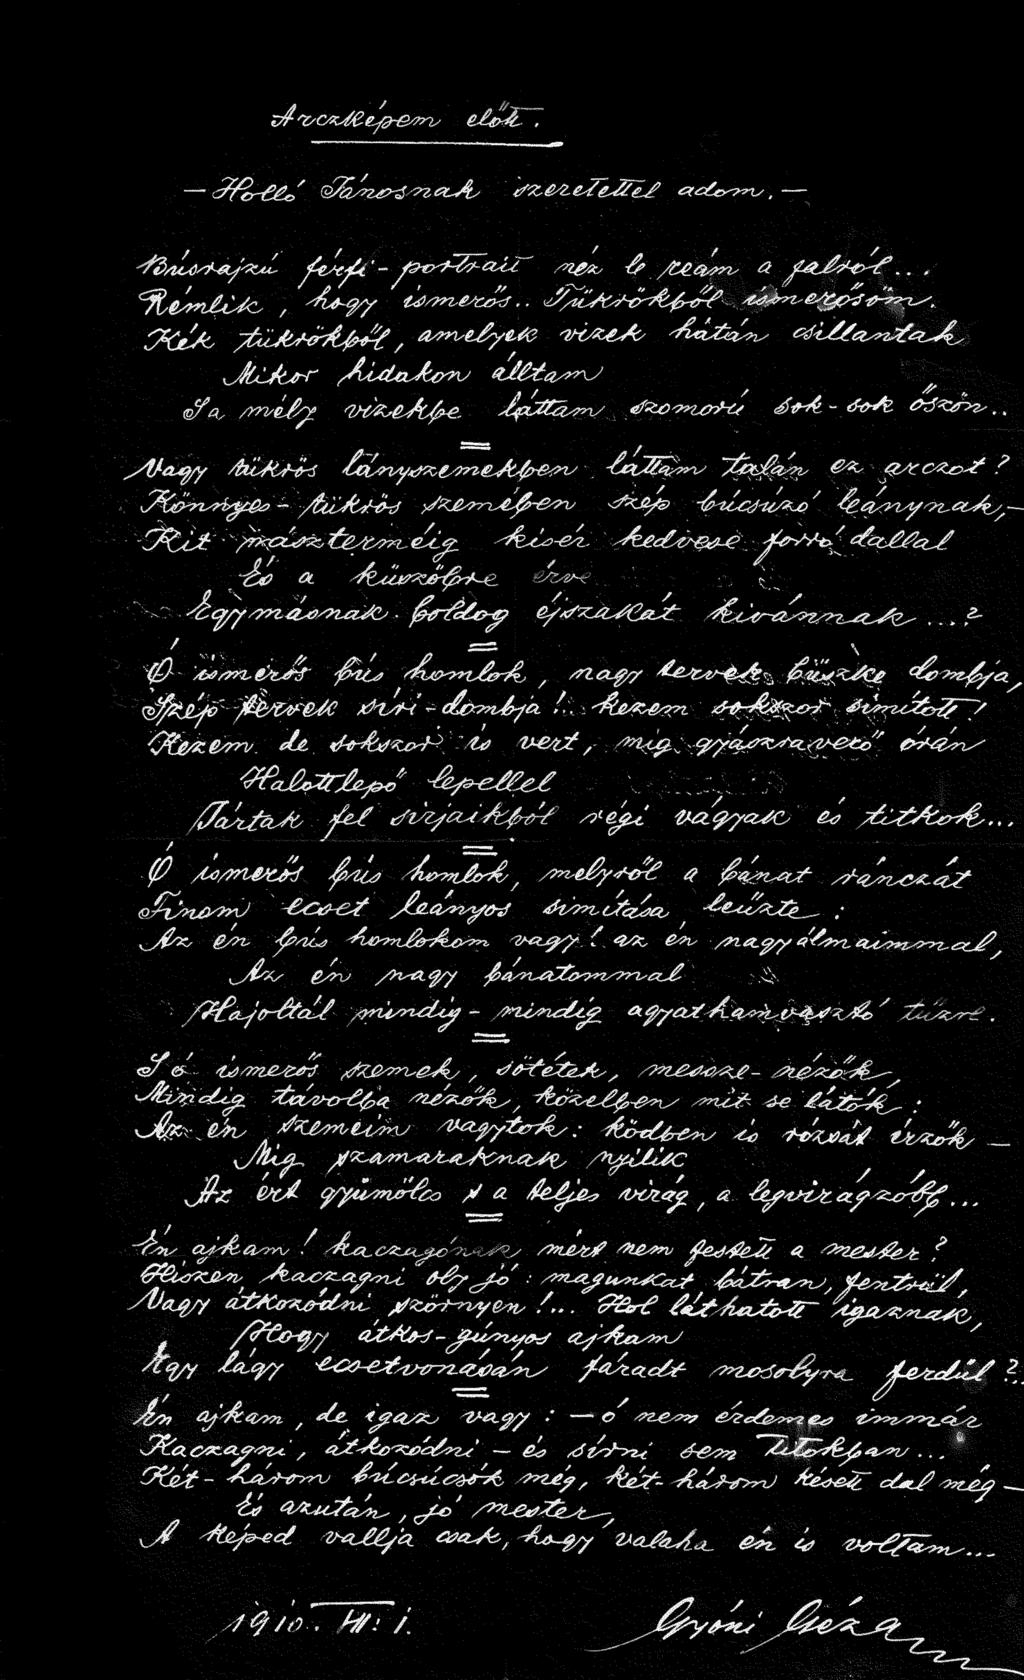 Arczképem előtt.
— Holló Jánosnak szeretettel adom. —
Búsrajzú férfi-portrait néz le reám a falról...
Rémlik, hogy ismerős.. Tükrökből ismerősöm.
Kék tükrökből, amelyek vizek hátán csillantak
Mikor hidakon álltam
S a mély vizekbe láttam szomorú sok-sok őszön..
Vagy tükrös lányszemekben láttam talán ez arczot?
Könnyes-tükrös szemében szép búcsúzó leánynak,—
Kit mászterméig kisér kedvese forró dallal
És a küszöbre érve
Egymásnak boldog éjszakát kivánnak ...?
Ó ismerős bús homlok, nagy tervek büszke dombja,
Szép tervek siri-dombja!.. kezem sokszor simított!
Kezem de sokszor is vert, mig gyászravető órán
Halottlepő lepellel
Jártak fel sirjaikból régi vágyak és titkok...
Ó ismerős bús homlok, melyről a bánat ránczát
Finom ecset leányos simitása leüzte:
Az én bús homlokom vagy! az én nagy álmaimmal,
Az én nagy bánatommal
Hajoltál mindig-mindig agyathamvasztó tüzre.
S ó ismerős szemek, sötétek, messze-nézők,
Mindig távolba nézők, közelben mit se látók:
Az én szemeim vagytok: ködben is rózsát érzők —
Mig szamaraknak nyilik
Az ért gyümölcs s a teljes virág, a legvirágzóbb...
Én ajkam! kaczagónak mért nem festett a mester?
Hiszen kaczagni oly jó: magunkat, bátran, fentrül,
Vagy átkozódni szörnyen!... Hol láthatott igaznak,
Hogy átkos-gúnyos ajkam
Egy lágy ecsetvonásán fáradt mosolyra ferdül?..
Én ajkam, de igaz vagy: — ó nem érdemes immár
Kaczagni, átkozódni – és sírni sem titokban...
Két-három búcsúcsók még, két-három késett dal még —
És azután, jó mester,
A képed vallja csak, hogy valaha én is voltam...
1910. VII. 1.
Gyóni Géza